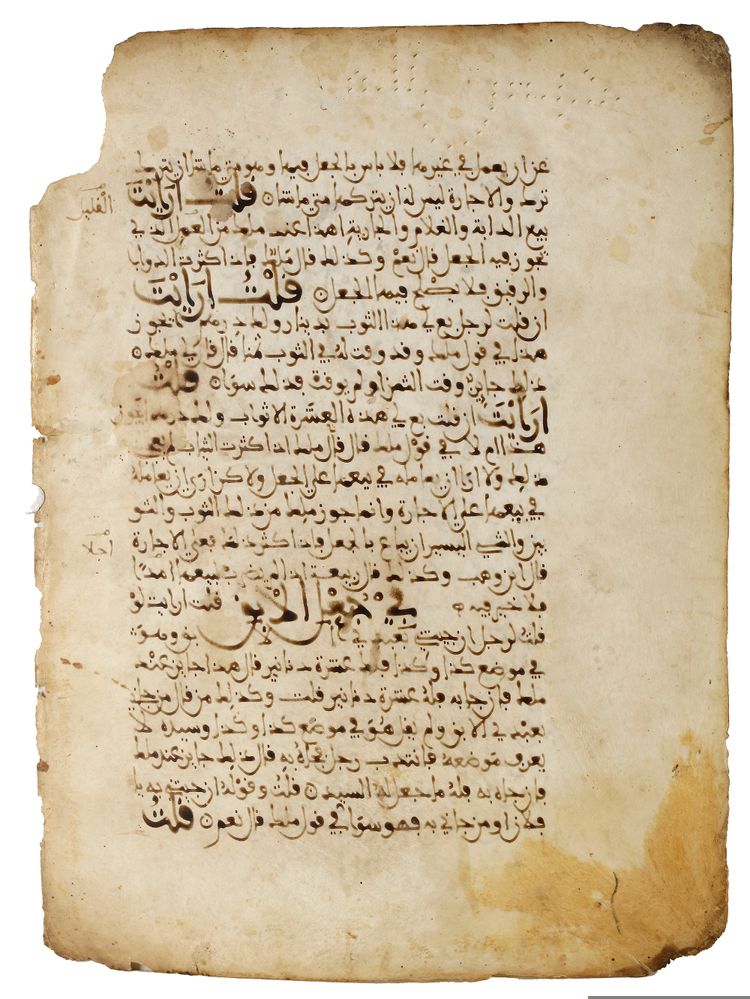 عن ان يعمل في غيرها فلا باس بالجعل فيها وهو متى ما شا ان يترك
ترك والاجارة ليس له ان يتركها متى ما شا قلت ارايت
القليل
بيع الدابة والغلام والجارية اهذا عند ملك من العمل الذي
يجوز فيه الجعل قال نعم وكذلك قال ملك فاذا كثرت الدواب
والرقيق فلا يصلح فيه الجعل قلت ارايت
ان قلت لرجل بع لي هذا الثوب بدينار ولك درهم ايجوز
هذا في قول ملك وقد وقت له في الثوب ثمنا قال قال لي ملك
ذلك جايز وقت الثمن او لم يوقته فذلك سوا قلت
ارايت ان قلت بع لي هذه العشرة الاثواب ولك درهم ايجوز
هذا ام لا في قول ملك قال قال ملك اذا كثرت الثياب لم
ذلك ولا ارى ان يعامله في بيعها على الجعل ولاكن ارى ان يعامله
في بيعها على الاجارة وانما جوز ملك من ذلك الثوب والثو
بين والشي اليسير ان يباع بالجعل فاذا كثر ذلك فعلى الاجارة
اجلا
قال ابن وهب وكذلك قال ربيعة اذا لم يضرب لبيعها امدا
فلا خير فيه في جعل الابق قلت ارايت لو
قلت لرجل ان جيت بعبدي وهو
في موضع كذا وكذا فلك عشرة دنانير قال هذا جايز عند
ملك فان جا به فله عشرة دنانير قلت وكذلك من قال من جا
بعبدي الابق ولم يقل هو في موضع كذا وكذا وسيده لا
يعرف موضعه فانتدب رجل فجا به قال ذلك جايز عند ملك
فان جا به فله ما جعل له السيد قلت وقوله ان جيتني به يا
فلان او من جاني به فهو سوا في قول ملك قال نعم قلت